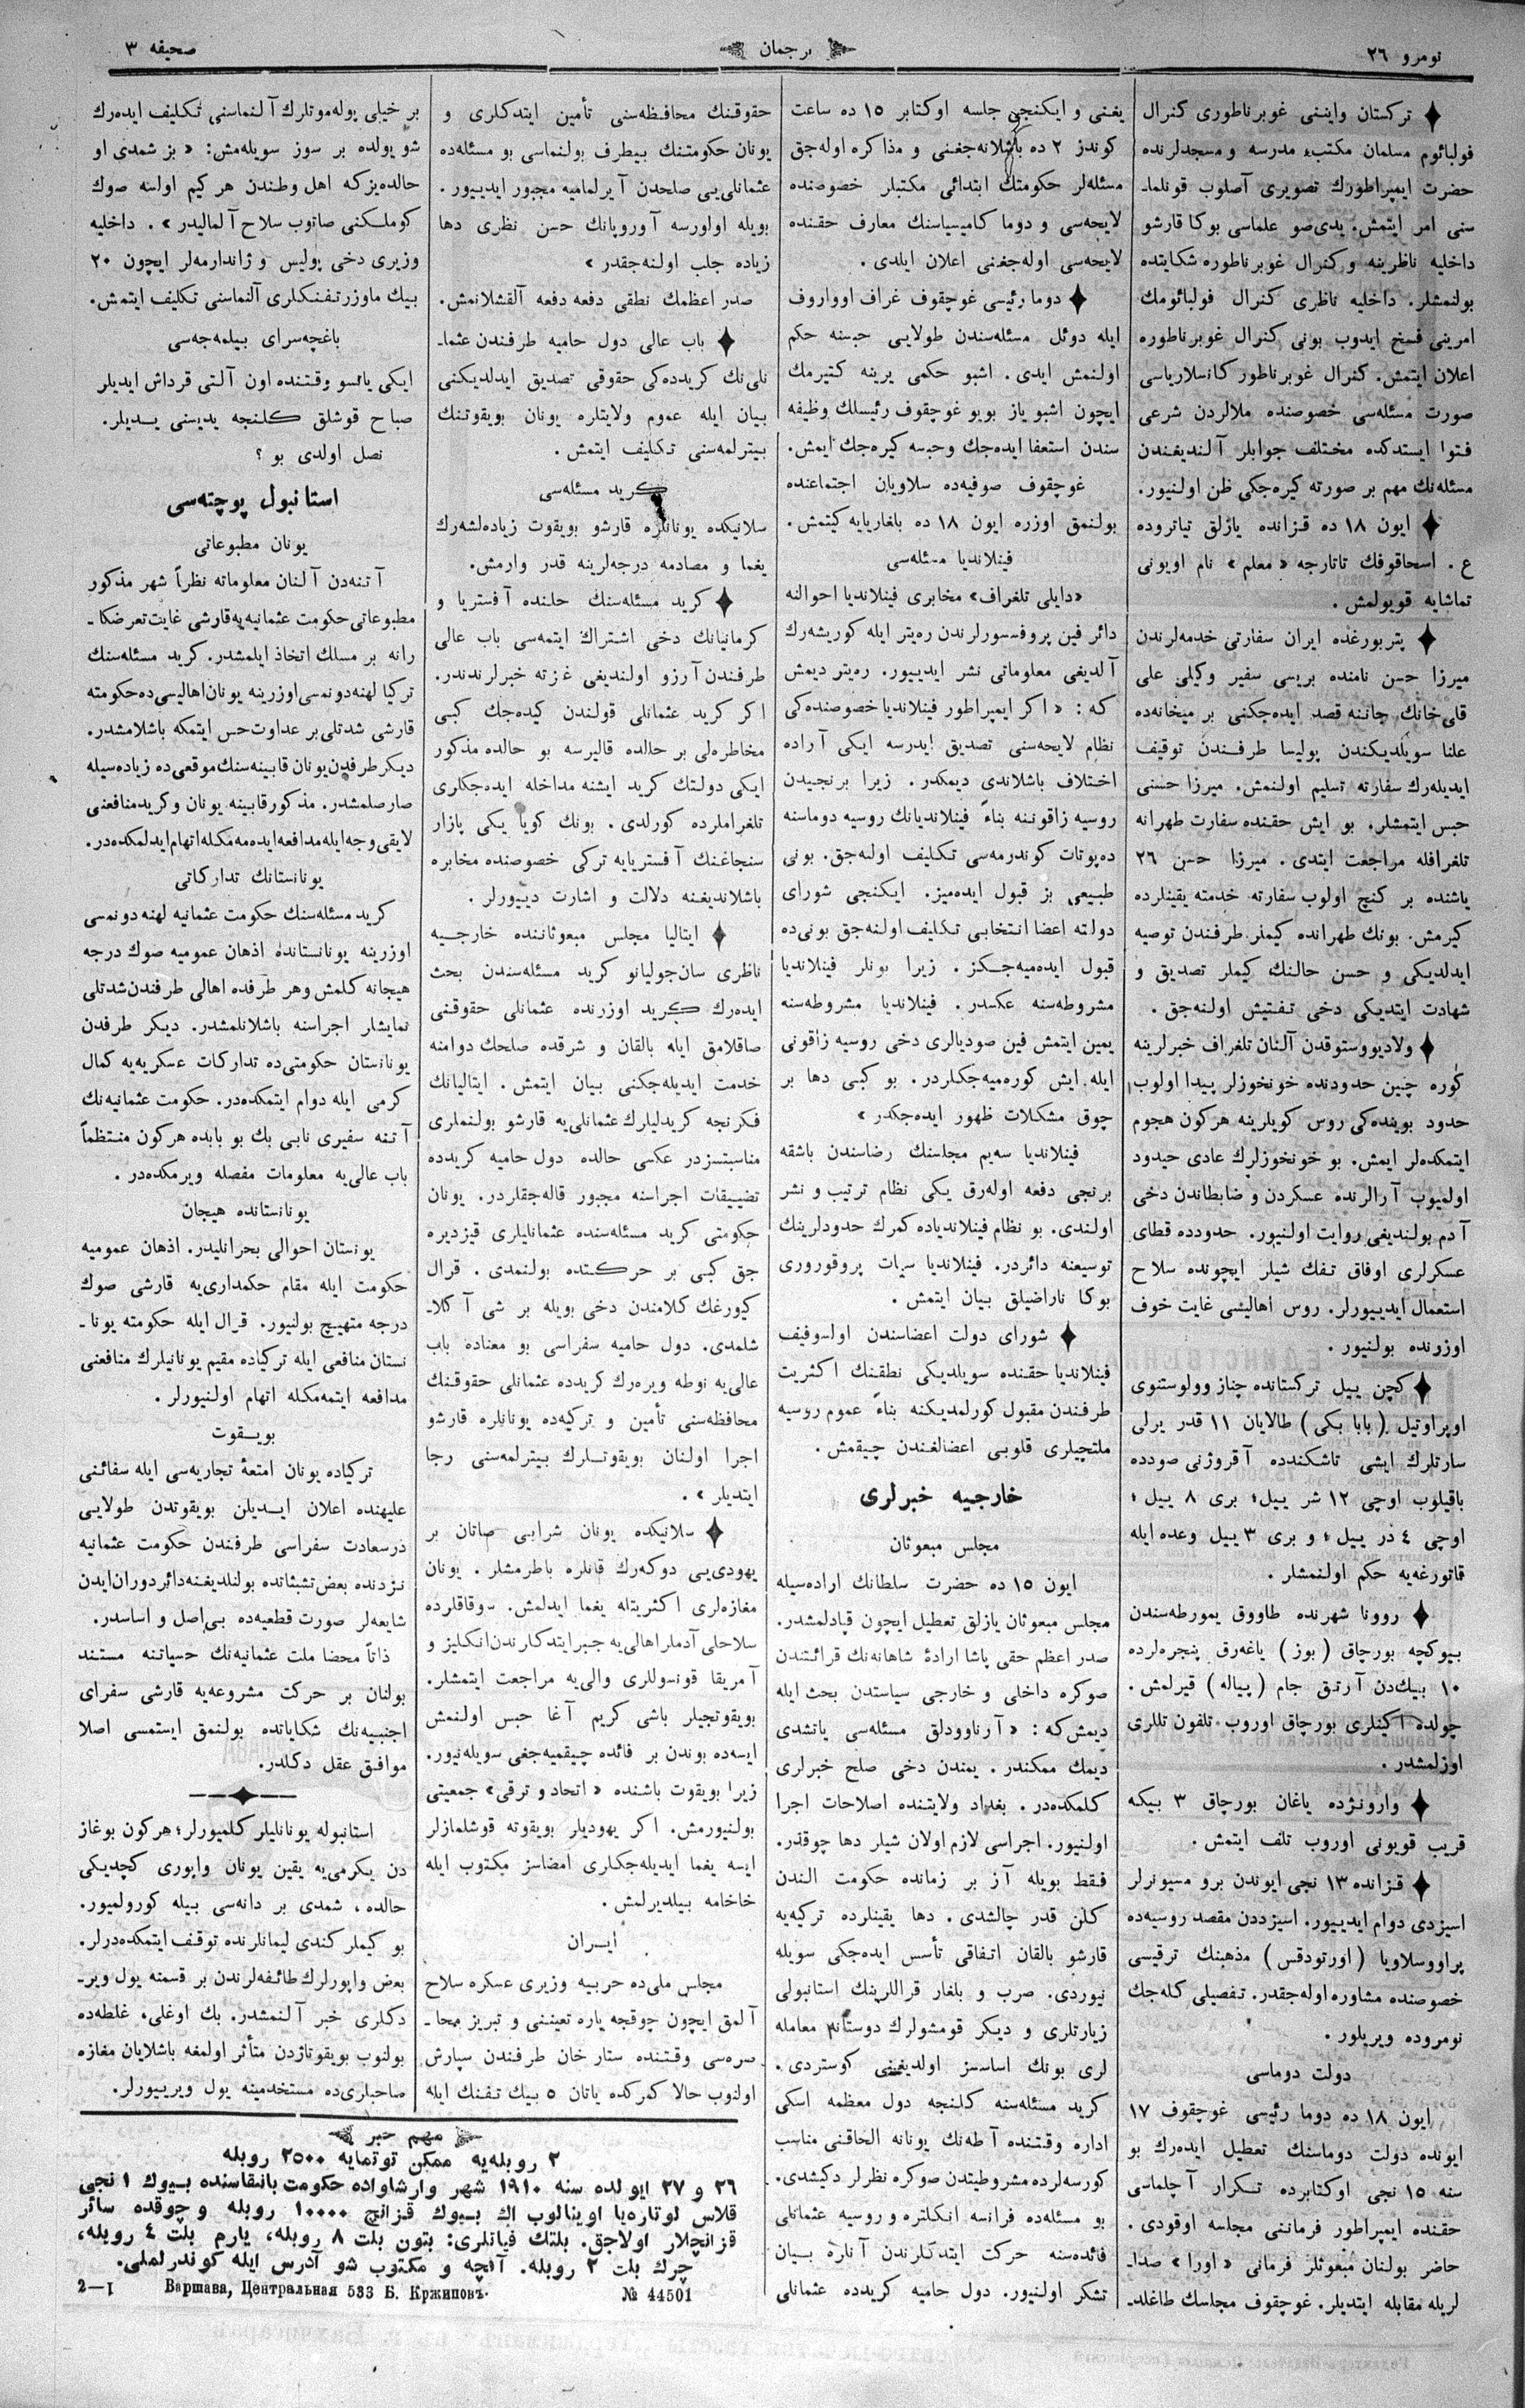 نومرو ٢٦
ترجمان
صحيفه ٣
تركستان وايننى غوبرناطورى كنرال
فولبائوم مسلمان مكتب، مدرسه و مسجدلرنده
حضرت ايمپراطورك تصويرى آصلوب قونلما-
سنى امر ايتمش. يدى‌صو علماسى بوكا قارشو
داخليه ناظرينه و كنرال غوبرناطوره شكايتده
بولنمشلر. داخليه ناظرى كنرال فولبائومك
امرينى فسخ ايدوب بونى كنرال غوبرناطوره
اعلان ايتمش. كنرال غوبرناطور كانسلارياسى
صورت مسئله‌سى خصوصنده ملالردن شرعى
فتوا ايستدكده مختلف جوابلر آلنديغندن
مسئله‌نك مهم بر صورته كيره‌جكى ظن اولنيور.
ايون ١٨ ده قزانده يازلق تياتروده
ع. اسحاقوفك تاتارجه «معلم» نام اويونى
تماشايه قويولمش.
پتربورغده ايران سفارتى خدمه‌لرندن
ميرزا حسن نامنده بريسى سفير وكيلى على
قلى‌خانك جاننه قصد ايده‌جكنى بر ميخانه‌ده
علنا سويلديكندن پوليسا طرفندن توقيف
ايديله‌رك سفارته تسليم اولنمش. ميرزا حسنى
حبس ايتمشلر. بو ايش حقنده سفارت طهرانه
تلغرافله مراجعت ايتدى. ميرزا حسن ٢٦
ياشنده بر كنچ اولوب سفارته خدمته يقينلرده
كيرمش. بونك طهرانده كيملر طرفندن توصيه
ايدلديكى و حسن حالنك كيملر تصديق و
شهادت ايتديكى دخى تفتيش اولنه‌جق.
ولاديووستوقدن آلنان تلغراف خبرلرينه
كوره چين حدودنده خونخوزلر پيدا اولوب
حدود بوينده‌كى روس كويلرينه هركون هجوم
ايتمكده‌لر ايمش. بو خونخوزلرك عادى حيدود
اولميوب آرالرنده عسكردن و ضابطاندن دخى
آدم بولنديغى روايت اولنيور. حدودده قطاى
عسكرلرى اوفاق تفك شيلر ايچونده سلاح
استعمال ايديیورلر. روس اهاليسى غايت خوف
اوزرنده بولنيور.
كچن ييل تركستانده چناز وولوستنوى
اوپراوتيل (بابا بكى) طالايان ١١ قدر يرلى
سارتلرك ايشى تاشكندده آقروژنى صودده
باقيلوب اوچى ١٢ شر ييل؛ برى ٨ ييل؛
اوچى ٤ در ييل؛ و برى ٣ ييل وعده ايله
قاتورغه‌يه حكم اولنمشلر.
روونا شهرنده طاووق يمورطه‌سندن
بيوكچه بورچاق (بوز) ياغه‌رق پنجره‌لرده
١٠ بيك‌دن آرتق جام (پياله) قيرلمش.
چولده اكينلرى بورچاق اوروب تلفون تللرى
اوزلمشدر.
وارونژده ياغان بورچاق ٣ بيكه
قريب قويونى اوروب تلف ايتمش.
قزانده ١٣ نجى ايوندن برو مسيونرلر
اسيزدى دوام ايديیور. اسيزددن مقصد روسيه‌ده
پراووسلاويا (اورتودقس) مذهبنك ترقيسى
خصوصنده مشاوره اوله‌جقدر. تفصيلى كله‌جك
نومروده ويريلور.
دولت دوماسى
ايون ١٨ ده دوما رئيسى غوچقوف ١٧
ايونده دولت دوماسنك تعطيل ايده‌رك بو
سنه ١٥ نجى اوكتابرده تكرار آچلماسى
حقنده ايمپراطور فرماننى مجلسه اوقودى.
حاضر بولنان مبعوثلر فرمانى «اورا» صدا-
لريله مقابله ايتديلر. غوچقوف مجلسك طاغلد-
يغنى و ايكنجى جلسه اوكتابر ١٥ ده ساعت
كوندز ٢ ده باشلانه‌جغنى و مذاكره اوله‌جق
مسئله‌لر حكومتك ابتدائى مكتبلر خصوصنده
لايحه‌سى و دوما كاميسياسنك معارف حقنده
لايحه‌سى اوله‌جغنى اعلان ايلدى.
دوما رئيسى غوچقوف غراف اوواروف
ايله دوئل مسئله‌سندن طولايى حبسنه حكم
اولنمش ايدى. اشبو حكمى يرينه كتيرمك
ايچون اشبو ياز بويو غوچقوف رئيسلك وظيفه
سندن استعفا ايده‌جك وحبسه كيره‌جك ايمش.
غوچقوف صوفيه‌ده سلاويان اجتماعنده
بولنمق اوزره ايون ١٨ ده بلغارياپه كيتمش.
فينلانديا مسئله‌سى
«دايلى تلغراف» مخابرى فينلانديا احوالنه
دائر فين پروفسورلرندن ره‌يتر ايله كوريشه‌رك
آلديغى معلوماتى نشر ايديیور. ره‌يتر ديمش
كه: «اكر ايمپراطور فينلانديا خصوصنده‌كى
نظام لايحه‌سنى تصديق ايدرسه ايكى آراده
اختلاف باشلاندى ديمكدر. زيرا برنجيدن
روسيه زاقوننه بناءً فينلانديانك روسيه دوماسنه
ده‌پوتات كوندرمه‌سى تكليف اولنه‌جق. بونى
طبيعى بز قبول ايده‌ميز. ايكنجى شوراى
دولته اعضا انتخابى تكليف اولنه‌جق بونى‌ده
قبول ايده‌ميه‌جكز. زيرا بونلر فينلانديا
مشروطه‌سنه عكسدر. فينلانديا مشروطه‌سنه
يمين ايتمش فين صوديالرى دخى روسيه زاقونى
ايله ايش كوره‌ميه‌جكلردر. بو كبى دها بر
چوق مشكلات ظهور ايده‌جكدر»
فينلانديا سه‌يم مجلسنك رضاسندن باشقه
برنجى دفعه اوله‌رق يكى نظام ترتيب و نشر
اولندى. بو نظام فينلانديا‌ده كمرك حدودلرينك
توسيعنه دائردر. فينلانديا سيات پروقوروری
بوكا ناراضيلق بيان ايتمش.
شوراى دولت اعضاسندن اولسوفيف
فينلانديا حقنده سويلديكى نطقنك اكثريت
طرفندن مقبول كورلمديكنه بناءً عموم روسيه
ملتجيلرى قلوبى اعضالغندن چيقمش.
خارجيه خبرلرى
مجلس مبعوثان
ايون ١٥ ده حضرت سلطانك اراده‌سيله
مجلس مبعوثان يازلق تعطيل ايچون قپادلمشدر.
صدر اعظم حقى پاشا ارادۀ شاهانه‌نك قرائتندن
صوكره داخلى و خارجى سياستدن بحث ايله
ديمش‌كه: «آرناوودلق مسئله‌سى ياتشدى
ديمك ممكندر. يمندن دخى صلح خبرلرى
كلمكده‌در. بغداد ولايتنده اصلاحات اجرا
اولنيور. اجراسى لازم اولان شيلر دها چوقدر.
فقط بويله آز بر زمانده حكومت الندن
كلن قدر چالشدى. دها يقينلرده تركيه‌يه
قارشو بالقان اتفاقى تأسس ايده‌جكى سويله
نيوردى. صرب و بلغار قراللرينك استانبولى
زيارتلرى و ديكر قومشولرك دوستانه معامله
لرى بونك اساسسز اولديغنى كوستردى.
كريد مسئله‌سنه كلنجه دول معظمه اسكى
اداره وقتنده آطه‌نك يونانه الحاقنى مناسب
كورسه‌لرده مشروطيتدن صوكره نظرلر دكيشدى.
بو مسئله‌ده فرانسه انكلتره و روسيه عثمانلى
فائده‌سنه حركت ايتدكلرندن آنلره بيان
تشكر اولنيور. دول حاميه كريدده عثمانلى
حقوقنك محافظه‌سنى تأمين ايتدكلرى و
يونان حكومتنك بيطرف بولنماسى بو مسئله‌ده
عثمانلى‌يى صلحدن آيرلماميه مجبور ايديیور.
بويله اولورسه آوروپانك حسن نظرى دها
زياده جلب اولنه‌جقدر»
صدر اعظمك نطقى دفعه دفعه آلقشلانمش.
باب عالى دول حاميه طرفندن عثما-
نلى‌نك كريدده‌كى حقوقى تصديق ايدلديكنى
بيان ايله عموم ولايتلره يونان بويقوتنك
بيترلمه‌سنى تكليف ايتمش.
كريد مسئله‌سى
سلانيكده يونانلره قارشو بويقوت زياده‌لشه‌رك
يغما و مصادمه درجه‌لرينه قدر وارمش.
كريد مسئله‌سنك حلنده آفستريا و
كرمانيانك دخى اشتراك ايتمه‌سى باب عالى
طرفندن آرزو اولنديغى غزته خبرلرندندر.
اكر كريد عثمانلى قولندن كيده‌جك كبى
مخاطره‌لى بر حالده قاليرسه بو حالده مذكور
ايكى دولتك كريد ايشنه مداخله ايده‌جكلرى
تلغراملرده كورلدى. بونك كويا يكى پازار
سنجاغنك آفسترياپه تركى خصوصنده مخابره
باشلانديغنه دلالت و اشارت دييورلر.
ايتاليا مجلس مبعوثاننده خارجيه
ناظرى سان‌جوليانو كريد مسئله‌سندن بحث
ايده‌رك كريد اوزرنده عثمانلى حقوقنى
صاقلامق ايله بالقان و شرقده صلحك دوامنه
خدمت ايديله‌جكنى بيان ايتمش. ايتاليانك
فكرنجه كريدليلرك عثمانلى‌يه قارشو بولنملرى
مناسبتسزدر عكسى حالده دول حاميه كريدده
تضييقات اجراسنه مجبور قاله‌جقلردر. يونان
حكومتى كريد مسئله‌سنده عثمانليلرى قيزديره
جق كبى بر حركتده بولنمدى. قرال
كيورغك كلامندن دخى بويله بر شى آكلا-
شلمدى. دول حاميه سفراسى بو معناده باب
عالى‌يه نوطه ويره‌رك كريدده عثمانلى حقوقنك
محافظه‌سنى تأمين و تركيه‌ده يونانلره قارشو
اجرا اولنان بويقوتلرك بيترلمه‌سنى رجا
ايتديلر».
سلانيكده يونان شرابى صاتان بر
يهودى‌يى دوكه‌رك قانلره باطرمشلر. يونان
مغازه‌لرى اكثريتله يغما ايدلمش. سوقاقلرده
سلاحلى آدملر اهالى‌يه جبر ايتدكلرندن انكليز و
آمريقا قونسوللرى والى‌يه مراجعت ايتمشلر.
بويقوتجيلر باشى كريم آغا حبس اولنمش
ايسه‌ده بوندن بر فائده چيقميه‌جغى سويله‌نيور.
زيرا بويقوت باشنده «اتحاد و ترقى» جمعيتى
بولنيورمش. اكر يهوديلر بويقوته قوشلمازلر
ايسه يغما ايديله‌جكلرى امضاسز مكتوب ايله
خاخامه بيلديرلمش.
ايران
مجلس ملى‌ده حربيه وزيرى عسكره سلاح
آلمق ايچون چوقجه پاره تعيننى و تبريز محا-
صره‌سى وقتنده ستار خان طرفندن سپارش
اولنوب حالا كمركده ياتان ٥ بيك تفنك ايله
بر خيلى پوله‌موتلرك آلنماسنى تكليف ايده‌رك
شو يولده بر سوز سويله‌مش: «بز شمدى او
حالده‌يزكه اهل وطندن هر كيم اولسه صوك
كوملكنى صاتوب سلاح آلماليدر». داخليه
وزيرى دخى پوليس و ژاندارمه‌لر ايچون ٢٠
بيك ماوزر تفنكلرى آلنماسنى تكليف ايتمش.
باغچه‌سراى بيلمه‌جه‌سى
ايكى ياتسو وقتنده اون آلتى قرداش ايديلر
صباح قوشلق كلنجه يديسنى يديلر.
نصل اولدى بو؟
استانبول پوچته‌سى
يونان مطبوعاتى
آتنه‌دن آلنان معلوماته نظراً شهر مذكور
مطبوعاتى حكومت عثمانيه‌يه قارشى غايت تعرضكا-
رانه بر مسلك اتخاذ ايلمشدر. كريد مسئله‌سنك
تركيا لهنه دونمسى اوزرينه يونان اهاليسى‌ده حكومته
قارشى شدتلى بر عداوت حس ايتمكه باشلامشدر.
ديكر طرفدن يونان قابينه‌سنك موقعى ده زياده‌سيله
صارصلمشدر. مذكور قابينه يونان و كريد منافعنى
لايقى وجه ايله مدافعه ايده‌مه‌مكله اتهام ايدلمكده‌در.
يونانستانك تداركاتى
كريد مسئله‌سنك حكومت عثمانيه لهنه دونمسى
اوزرينه يونانستانده اذهان عموميه صوك درجه
هيجانه كلمش وهر طرفده اهالى طرفندن شدتلى
نمايشلر اجراسنه باشلانلمشدر. ديكر طرفدن
يونانستان حكومتى‌ده تداركات عسكريه‌يه كمال
كرمى ايله دوام ايتمكده‌در. حكومت عثمانيه‌نك
آتنه سفيرى نابى بك بو بابده هركون منتظماً
باب عالى‌يه معلومات مفصله ويرمكده‌در.
يونانستانده هيجان
يونستان احوالى بحرانليدر. اذهان عموميه
حكومت ايله مقام حكمدارى‌يه قارشى صوك
درجه متهيج بولنيور. قرال ايله حكومته يونا-
نستان منافعى ايله تركياده مقيم يونانيلرك منافعنى
مدافعه ايتمه‌مكله اتهام اولنيورلر.
بويقوت
تركياده يونان امتعۀ تجاريه‌سى ايله سفائنى
عليهنده اعلان ايديلن بويقوتدن طولايى
درسعادت سفراسى طرفندن حكومت عثمانيه
نزدنده بعض تشبثاتده بولنلديغنه دائر دوران ايدن
شايعه‌لر صورت قطعيه‌ده بى‌اصل و اساسدر.
ذاتاً محضا ملت عثمانيه‌نك حسياتنه مستند
بولنان بر حركت مشروعه‌يه قارشى سفراى
اجنبيه‌نك شكاياتده بولنمق ايستمسى اصلا
موافق عقل دكلدر.
استانبوله يونانليلر كلميورلر؛ هركون بوغاز
دن يكرمى‌يه يقين يونان واپورى كچديكى
حالده، شمدى بر دانه‌سى بيله كورولميور.
بو كيملر كندى ليمانلرنده توقف ايتمكده‌درلر.
بعض واپورلرك طائفه‌لرندن بر قسمنه يول وير-
دكلرى خبر آلنمشدر. بك اوغلى، غلطه‌ده
بولنوب بويقوتاژدن متأثر اولمغه باشلايان مغازه
صاحبلرى‌ده مستخدمينه يول ويرييورلر.
مهم خبر
٢ روبله‌يه ممكن توتمايه ٢٥٠٠ روبله
٢٦ و ٢٧ ايولده سنه ١٩١٠ شهر وارشاواده حكومت بانقاسنده بيوك ١ نجى
قلاس لوتاره‌يا اوينالوب اك بيوك قزانچ ١٠٠٠٠ روبله و چوقده سائر
قزانچلار اولاجق. بلتك فياتلرى: بتون بلت ٨ روبله، يارم بلت ٤ روبله،
چرك بلت ٢ روبله. آقچه و مكتوب شو آدرس ايله كوندرلملى.
Варшава, Центральная 533 Б. Кржиповъ.
№ 44501
2—1